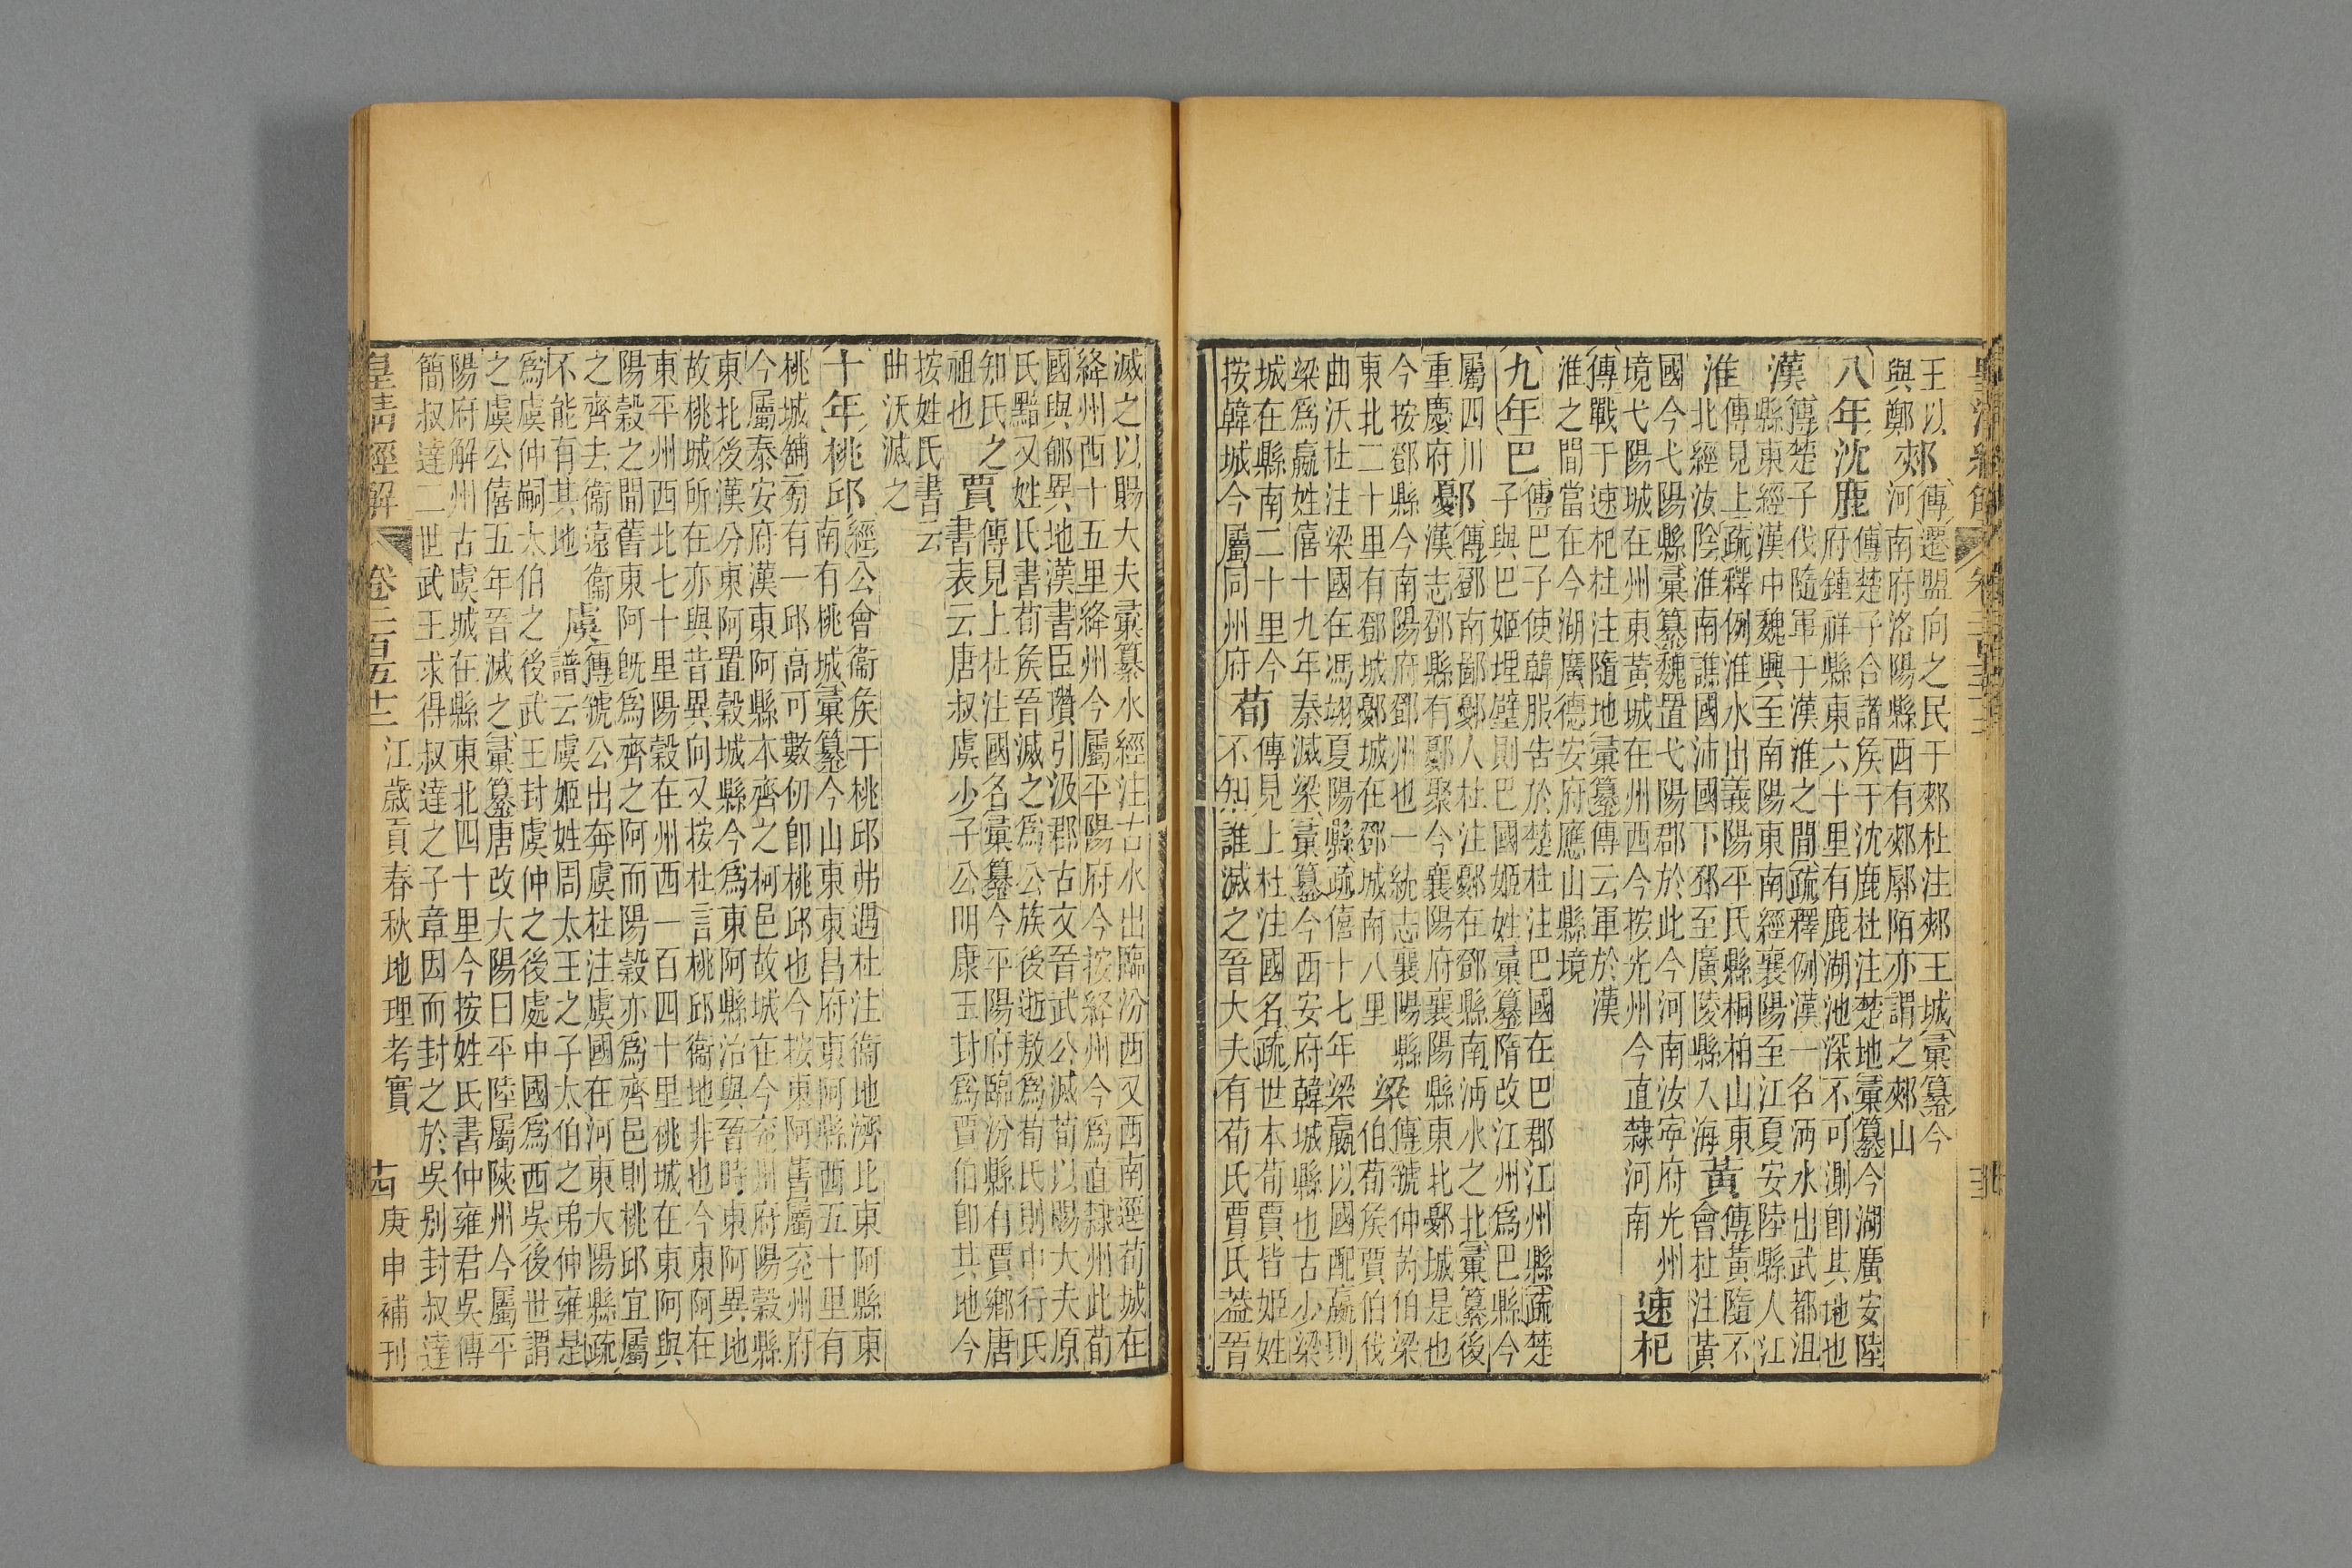 王以與鄭郟傳遷盟向之民于郟杜注郟王城彙纂今河南府洛陽縣西有郟鄏陌亦謂之郟山
八年沈鹿傳楚子合諸侯于沈鹿杜注楚地彙纂今湖廣安陸府鍾祥縣東六十里有鹿湖池深不可測卽其地也
漢傳楚子伐隨軍于漢淮之間疏釋例漢一名沔水出武都沮縣東經漢中魏興至南陽東南經襄陽至江夏安陸縣人江
淮傳見上疏釋例淮水出義陽平氏縣桐柏山東北經汝陰淮南譙國沛國下邳至廣陵縣入海黃傳黃隨不會杜注黃
國今弋陽縣彙纂魏置弋陽郡於此今河南汝寧府光州境弋陽城在州東黃城在州西今按光州今直隸河南速杞
傳戰于速杞杜注隨地彙纂傳云軍於漢淮之間當在今湖廣德安府應山縣境
九年巴傳巴子使韓服告於楚杜注巴國在巴郡江州縣疏楚子與巴姬埋璧則巴國姬姓彙纂隋改江州爲巴縣今
屬四川重慶府鄾傳鄧南鄙鄾人杜注鄾在鄧縣南沔水之北彙纂後漢志鄧縣有鄾聚今襄陽府襄陽縣東北鄾城是也
今按鄧縣今南陽府鄧州也一統志襄陽縣東北二十里有鄧城鄾城在鄧城南八里梁傳虢仲芮伯梁伯荀侯賈伯伐
曲沃杜注梁國在馮翊夏陽縣疏僖十七年梁嬴以國配嬴則梁爲嬴姓僖十九年秦滅梁彙纂今西安府韓城縣也古少梁
城在縣南二十里今按韓城今屬同州府荀傳見上杜注國名疏世本荀賈皆姬姓不知誰滅之晉大夫有荀氏賈氏蓋晉
滅之以賜大夫彙纂水經注古水出臨汾西又西南逕荀城在絳州西十五里絳州今屬平陽府今按絳州今爲直隸州此荀
國與郇異地漢書臣瓚引汲郡古文晉武公滅荀以賜大夫原氏黯又姓氏書荀侯晉滅之爲公族後逝敖爲荀氏則中行氏
知氏之祖也賈傳見上杜注國名彙纂今平陽府臨汾縣有賈鄉唐書表云唐叔虞少子公明康王封爲賈伯卽其地今
按姓氏書云曲沃滅之
十年桃邱經公會衞侯于桃邱弗遇杜注衞地濟北東阿縣東南有桃城彙纂今山東東昌府東阿縣西五十里有
桃城舖旁有一邱高可數仞卽桃邱也今按東阿舊屬兗州府今屬泰安府漢東阿縣本齊之柯邑故城在今兗州府陽穀縣
東北後漢分東阿置穀城縣今爲東阿縣治與晉時東阿異地故桃城所在亦與昔異向又按杜言桃邱衞地非也今東阿在
東平州西北七十里陽穀在州西一百四十里桃城在東阿與陽穀之間舊東阿旣爲齊之阿而陽穀亦爲齊邑則桃邱宜屬
之齊去衞遠衞不能有其地虞傳虢公出奔虞杜注虞國在河東大陽縣疏譜云虞姬姓周太王之子太伯之弟仲雍是
爲虞仲嗣太伯之後武王封虞仲之後處中國爲西吳後世謂之虞公僖五年晉滅之彙纂唐改大陽曰平陸屬陝州今屬平
陽府解州古虞城在縣東北四十里今按姓氏書仲雍君吳傳簡叔達二世武王求得叔達之子章因而封之於吳別封叔達
皇清經解 卷二百五十二 江歲貢春秋地理考實 十四 庚申補刊